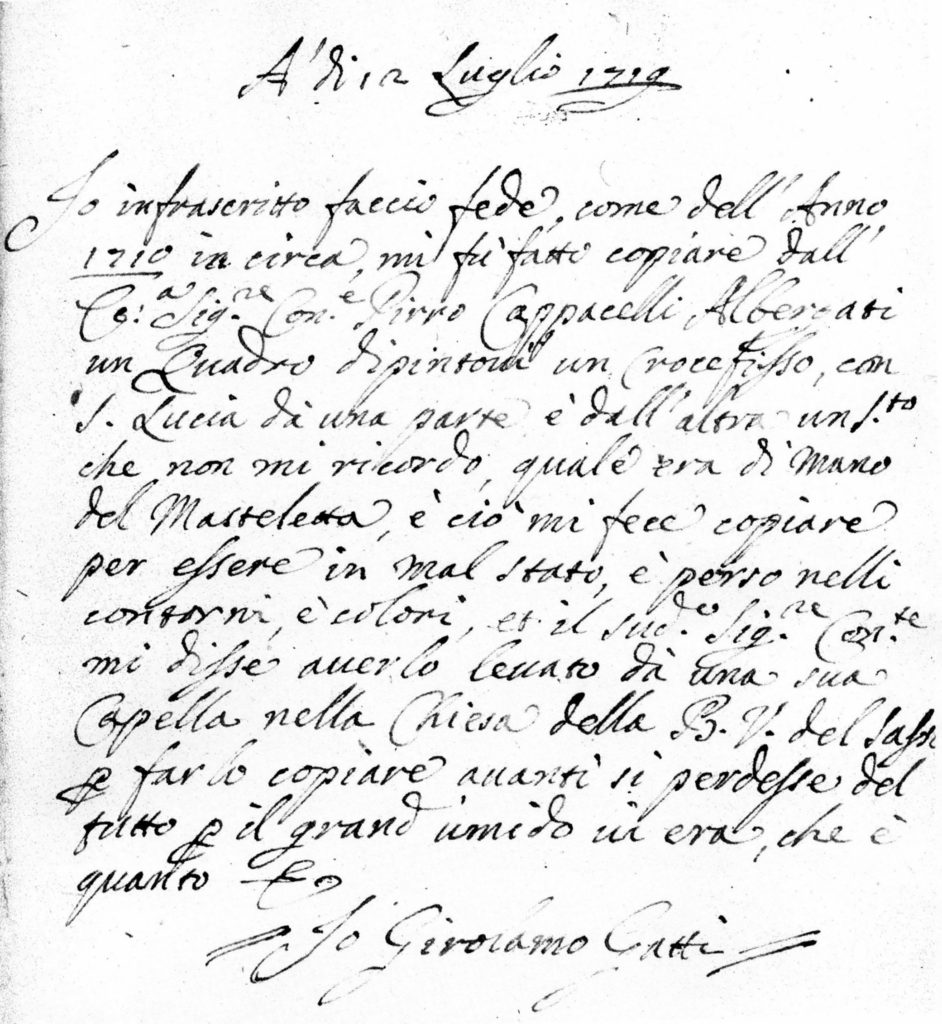 A' di 12 Luglio 1719
Io infrascritto faccio fede, come dell' Anno
1710 in circa, mi fù fatto copiare dall'
Ec:ª Sig.re Con.e Pirro Cappacelli Albergati
un Quadro dipintovi un Crocefisso, con
S. Lucia dà una parte è dall' altra un S.to
che non mi ricordo, quale era di Mano
del Masteletta, è ciò mi fece copiare
per essere in mal stato, è perso nelli
contorni, è colori, et il sud.o Sig.re Con.te
mi disse averlo levato dà una sua
Capella nella Chiesa della B. V. del Sasso
p farlo copiare avanti si perdesse del
tutto p il grand umido ivi era, che è
quanto &c
Io Girolamo Gatti